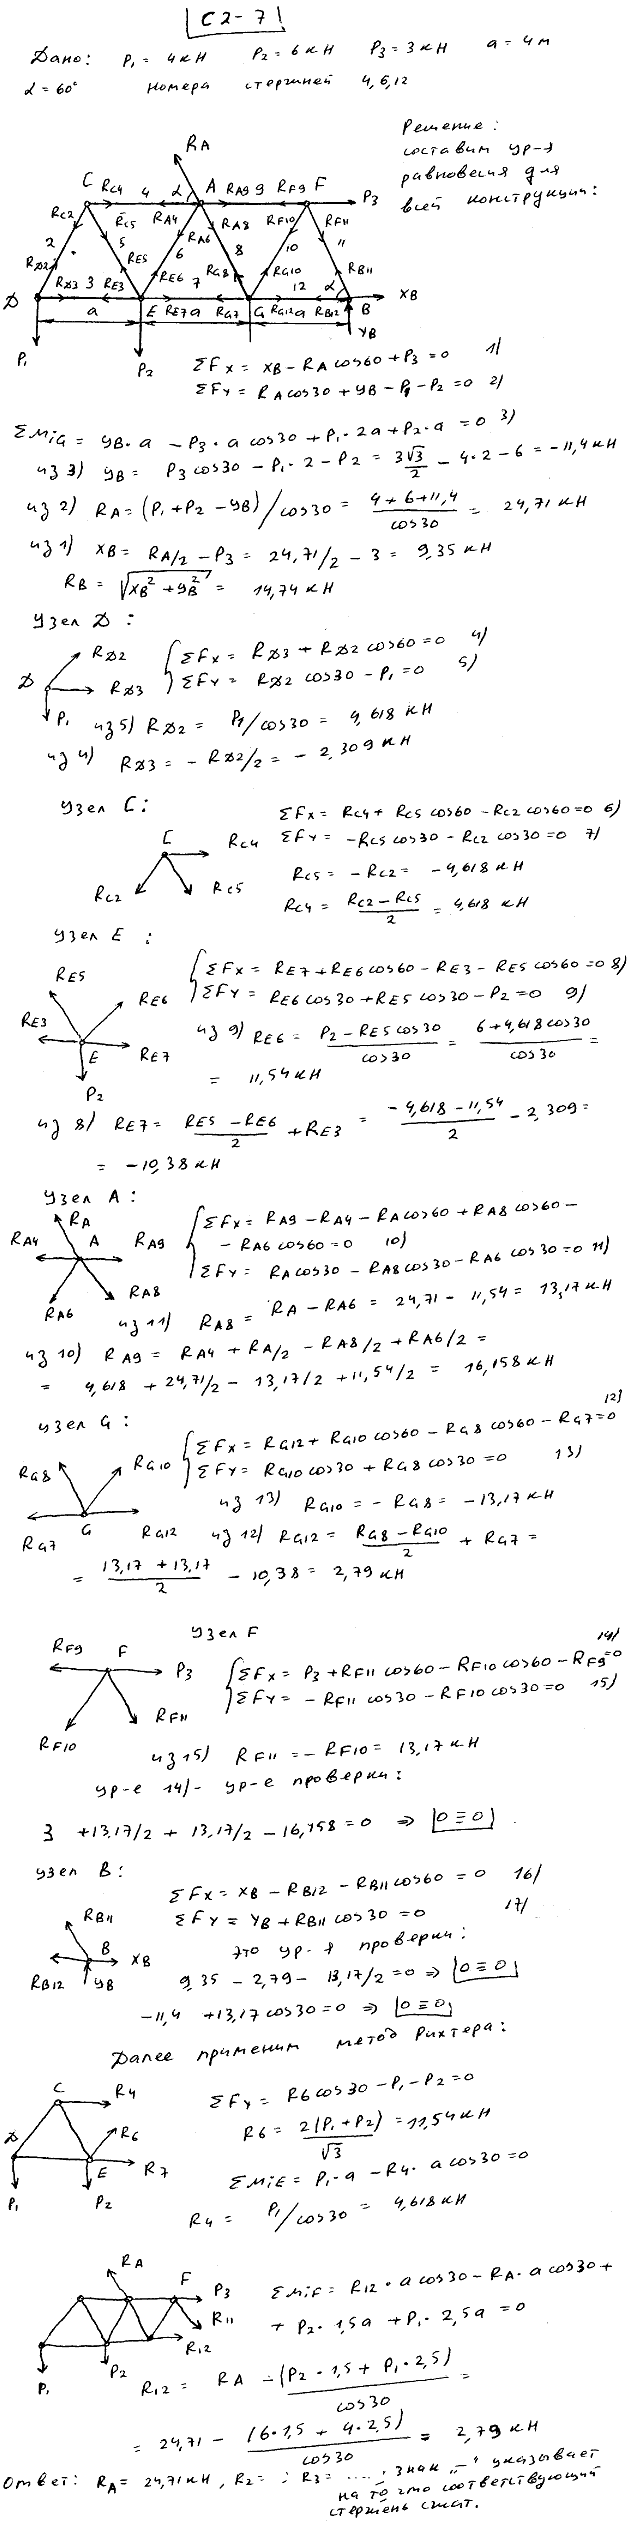 С2-7
Дано: P₁= 4кН P₂= 6кН P₃= 3кН a= 4м
α=60° Номера стержней 4,6,12
Решение:
составим ур-я
равновесия для
всей конструкции:
RA
C RC4 4 α A RA9 9 RF9 F P3
RC2 RC5 RA4 RA6 RA8 RF10 RF11
2 5 6 8 10 11
RД2 RE5 RE6 RG8 RG10 RB11
Д RД3 3 RE3 7 12 α XB
a E RE7 a RG7 G RG12 a RB12 B
P₁ P₂ YB
ΣFx = XB - RA cos60 + P3 = 0 1)
ΣFY = RA cos30 + YB - P₁ - P₂ = 0 2)
ΣMiG = YB·a - P3·a cos30 + P₁·2a + P₂·a = 0 3)
из 3) YB = P3 cos30 - P₁·2 - P₂ = 3√3/2 - 4·2 - 6 = -11,4 кН
из 2) RA = (P₁+P₂ - YB)/cos30 = (4+6+11,4)/cos30 = 24,71 кН
из 1) XB = RA/2 - P3 = 24,71/2 - 3 = 9,35 кН
RB = √(XB² + YB²) = 14,74 кН
Узел Д:
RД2 ΣFx = RД3 + RД2 cos60 = 0 4)
Д RД3 ΣFY = RД2 cos30 - P₁ = 0 5)
P₁ из 5) RД2 = P₁/cos30 = 4,618 кН
из 4) RД3 = - RД2/2 = - 2,309 кН
Узел C:
ΣFx = RC4 + RC5 cos60 - RC2 cos60 = 0 6)
C RC4 ΣFY = -RC5 cos30 - RC2 cos30 = 0 7)
RC2 RC5 RC5 = -RC2 = -4,618 кН
RC4 = (RC2 - RC5)/2 = 4,618 кН
Узел E:
RE5 RE6 ΣFx = RE7 + RE6 cos60 - RE3 - RE5 cos60 = 0 8)
ΣFY = RE6 cos30 + RE5 cos30 - P₂ = 0 9)
RE3 E RE7 из 9) RE6 = (P₂ - RE5 cos30)/cos30 = (6+4,618 cos30)/cos30 =
P₂ = 11,54 кН
из 8) RE7 = (RE5 - RE6)/2 + RE3 = (-4,618 - 11,54)/2 - 2,309 =
= -10,38 кН
Узел A:
RA ΣFx = RA9 - RA4 - RA cos60 + RA8 cos60 -
RA4 A RA9 - RA6 cos60 = 0 10)
ΣFY = RA cos30 - RA8 cos30 - RA6 cos30 = 0 11)
RA6 RA8 из 11) RA8 = RA - RA6 = 24,71 - 11,54 = 13,17 кН
из 10) RA9 = RA4 + RA/2 - RA8/2 + RA6/2 =
= 4,618 + 24,71/2 - 13,17/2 + 11,54/2 = 16,158 кН
Узел G:
RG8 RG10 ΣFx = RG12 + RG10 cos60 - RG8 cos60 - RG7 = 0 12)
ΣFY = RG10 cos30 + RG8 cos30 = 0 13)
из 13) RG10 = - RG8 = -13,17 кН
RG7 G RG12 из 12) RG12 = (RG8 - RG10)/2 + RG7 =
= (13,17 + 13,17)/2 - 10,38 = 2,79 кН
Узел F
RF9 F P3 ΣFx = P3 + RF11 cos60 - RF10 cos60 - RF9 = 0 14)
ΣFY = - RF11 cos30 - RF10 cos30 = 0 15)
RF10 RF11 из 15) RF11 = - RF10 = 13,17 кН
ур-е 14)- ур-е проверки:
3 +13,17/2 + 13,17/2 - 16,158 = 0 ⇒ 0≡0
Узел B:
ΣFx = XB - RB12 - RB11 cos60 = 0 16)
RB11 ΣFY = YB + RB11 cos30 = 0 17)
B XB это ур-я проверки:
RB12 YB 9,35 - 2,79 - 13,17/2 = 0 ⇒ 0≡0
-11,4 +13,17 cos30 = 0 ⇒ 0≡0
Далее применим метод Рихтера:
C R4 ΣFY = R6 cos30 - P₁ - P₂ = 0
Д R6 R6 = 2(P₁+P₂)/√3 = 11,54 кН
E R7 ΣMiE = P₁·a - R4·a cos30 = 0
P₁ P₂ R4 = P₁/cos30 = 4,618 кН
RA F P3 ΣMiF = R12·a cos30 - RA·a cos30 +
R11 + P₂·1,5a + P₁·2,5a = 0
P₂ R12
P₁ R12 = RA - (P₂·1,5 + P₁·2,5)/cos30 =
= 24,71 - (6·1,5 + 4·2,5)/cos30 = 2,79 кН
Ответ: RA = 24,71 кН, R2 = ; R3 = .... , знак „-" указывает
на то что соответствующий
стержень сжат.